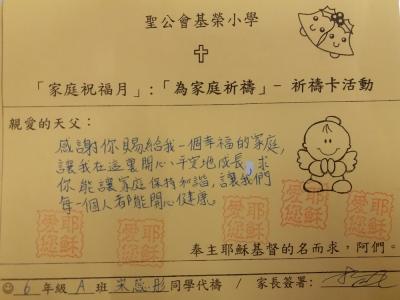 聖公會基榮小學
「家庭祝福月」:「為家庭祈禱」- 祈禱卡活動
親愛的天父：
感謝你賜給我一個幸福的家庭,
讓我在這裏開心、平安地成長,求
你能讓家庭保持和諧,讓我們
每一個人都能開心健康。
耶穌愛您
耶穌愛您
耶穌愛您
耶穌愛您
奉主耶穌基督的名而求，阿們。
6 年級 A 班 同學代禱 / 家長簽署: